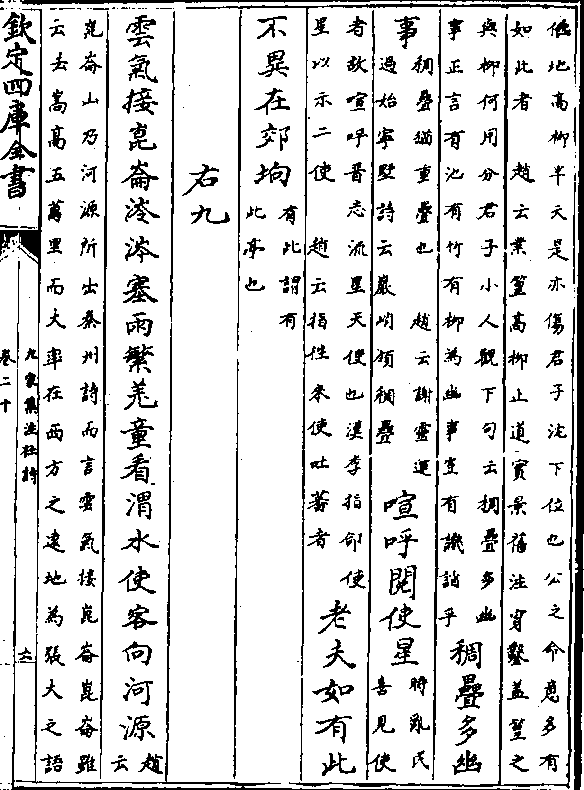 低地高柳半天是亦傷君子沈下位也公之命意多有
如此者 趙云業篁高柳止道實景舊注穿鑿蓋篁之
與柳何用分君子小人觀下句云稠疊多幽
事正言有池有竹有柳為幽事豈有譏誚乎
稠疊多幽
事
稠疊猶重疊也 趙云謝靈運
過始寧墅詩云巖峭嶺稠疊
喧呼閱使星
時亂民
喜見使
者故喧呼晉志流星天使也漢李指郃使
星以示二使 趙云指往來使吐蕃者
老夫如有此
不異在郊坰
有此謂有
此亭也
右九
雲氣接崑崙涔涔塞雨繁羌童看渭水使客向河源
趙
云
崑崙山乃河源所出秦州詩而言雲氣接崑崙崑崙雖
云去嵩高五萬里而大率在西方之遠地為張大之語
欽定四庫全書
九家集注杜詩
卷二十